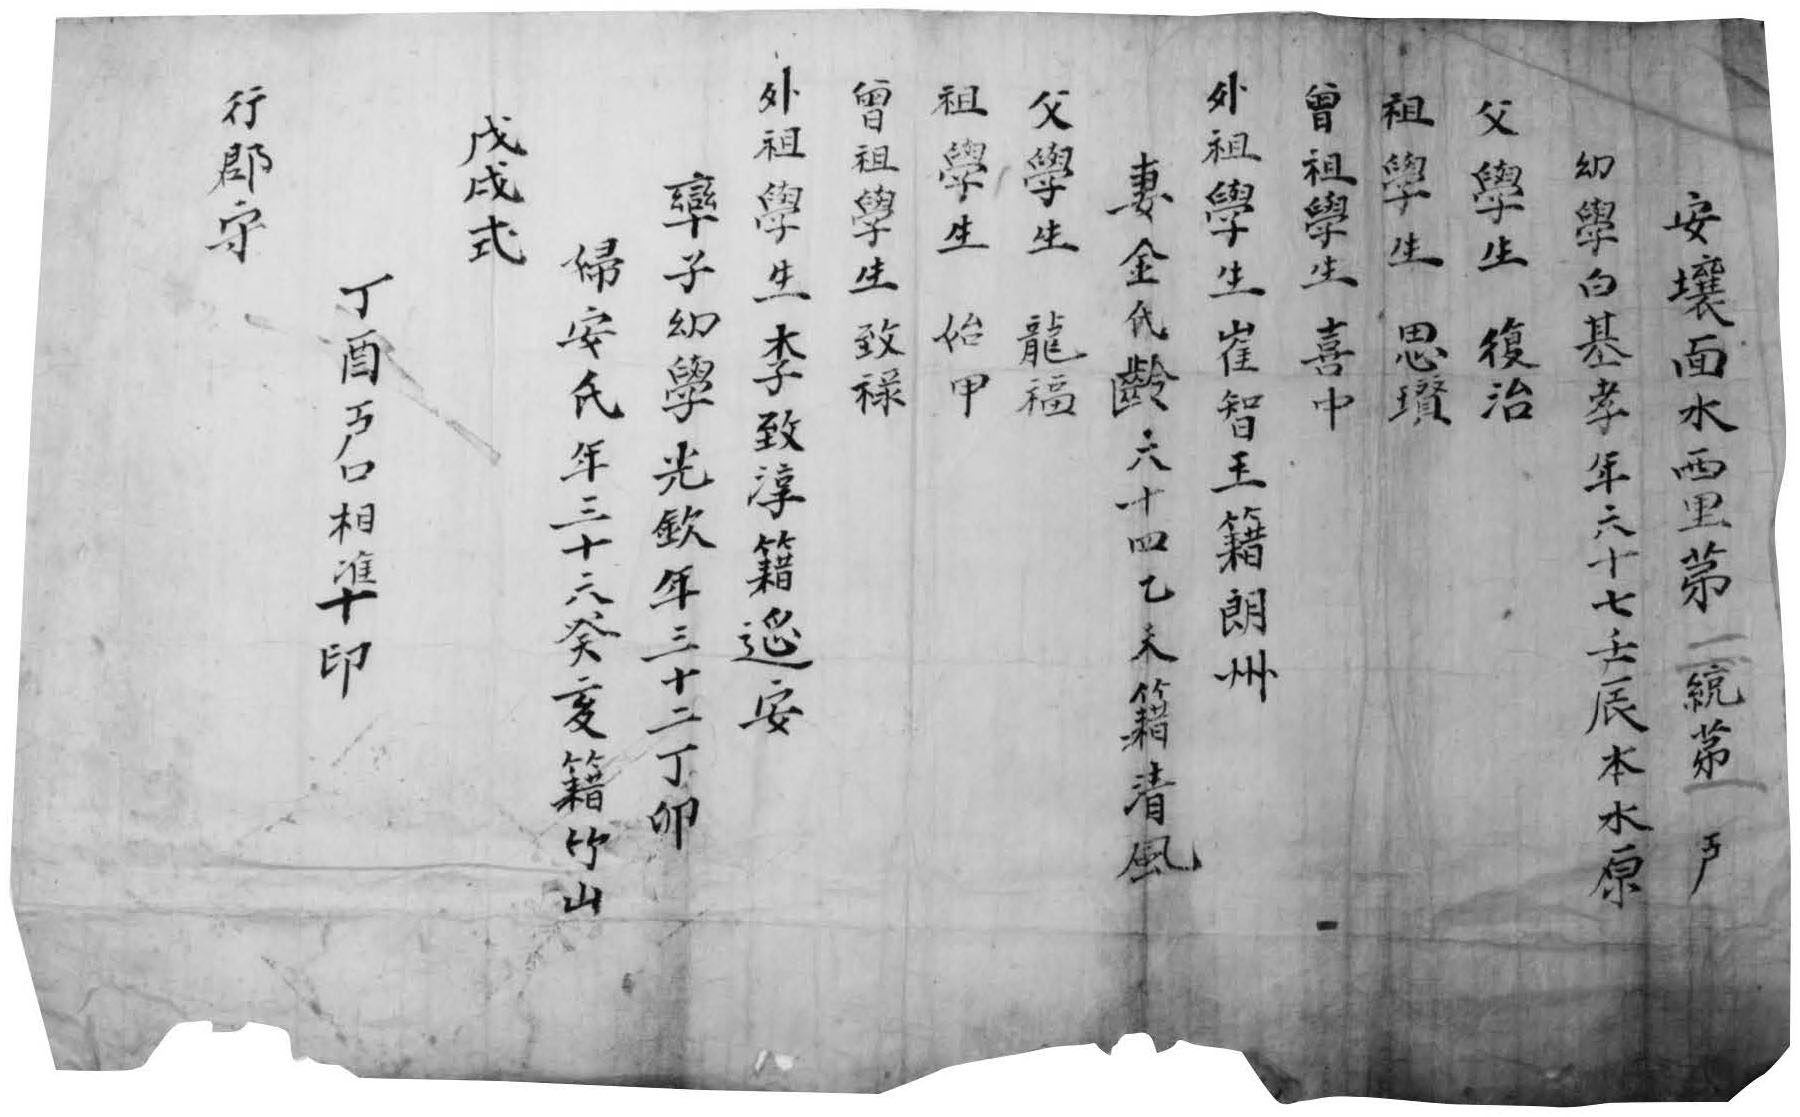 安壤面水西里第一統第一戶
幼學白基孝年六十七壬辰本水原
父學生 復治
祖學生 思瓚
曾祖學生 喜中
外祖學生崔智玉籍朗州
妻金氏齡六十四乙未籍清風
父學生 龍福
祖學生 始甲
曾祖學生 致祿
外祖學生李致淳籍遂安
率子幼學光欽年三十二丁卯
婦安氏年三十六癸亥籍竹山
戊戌式
丁酉戶口相準十印
行郡守